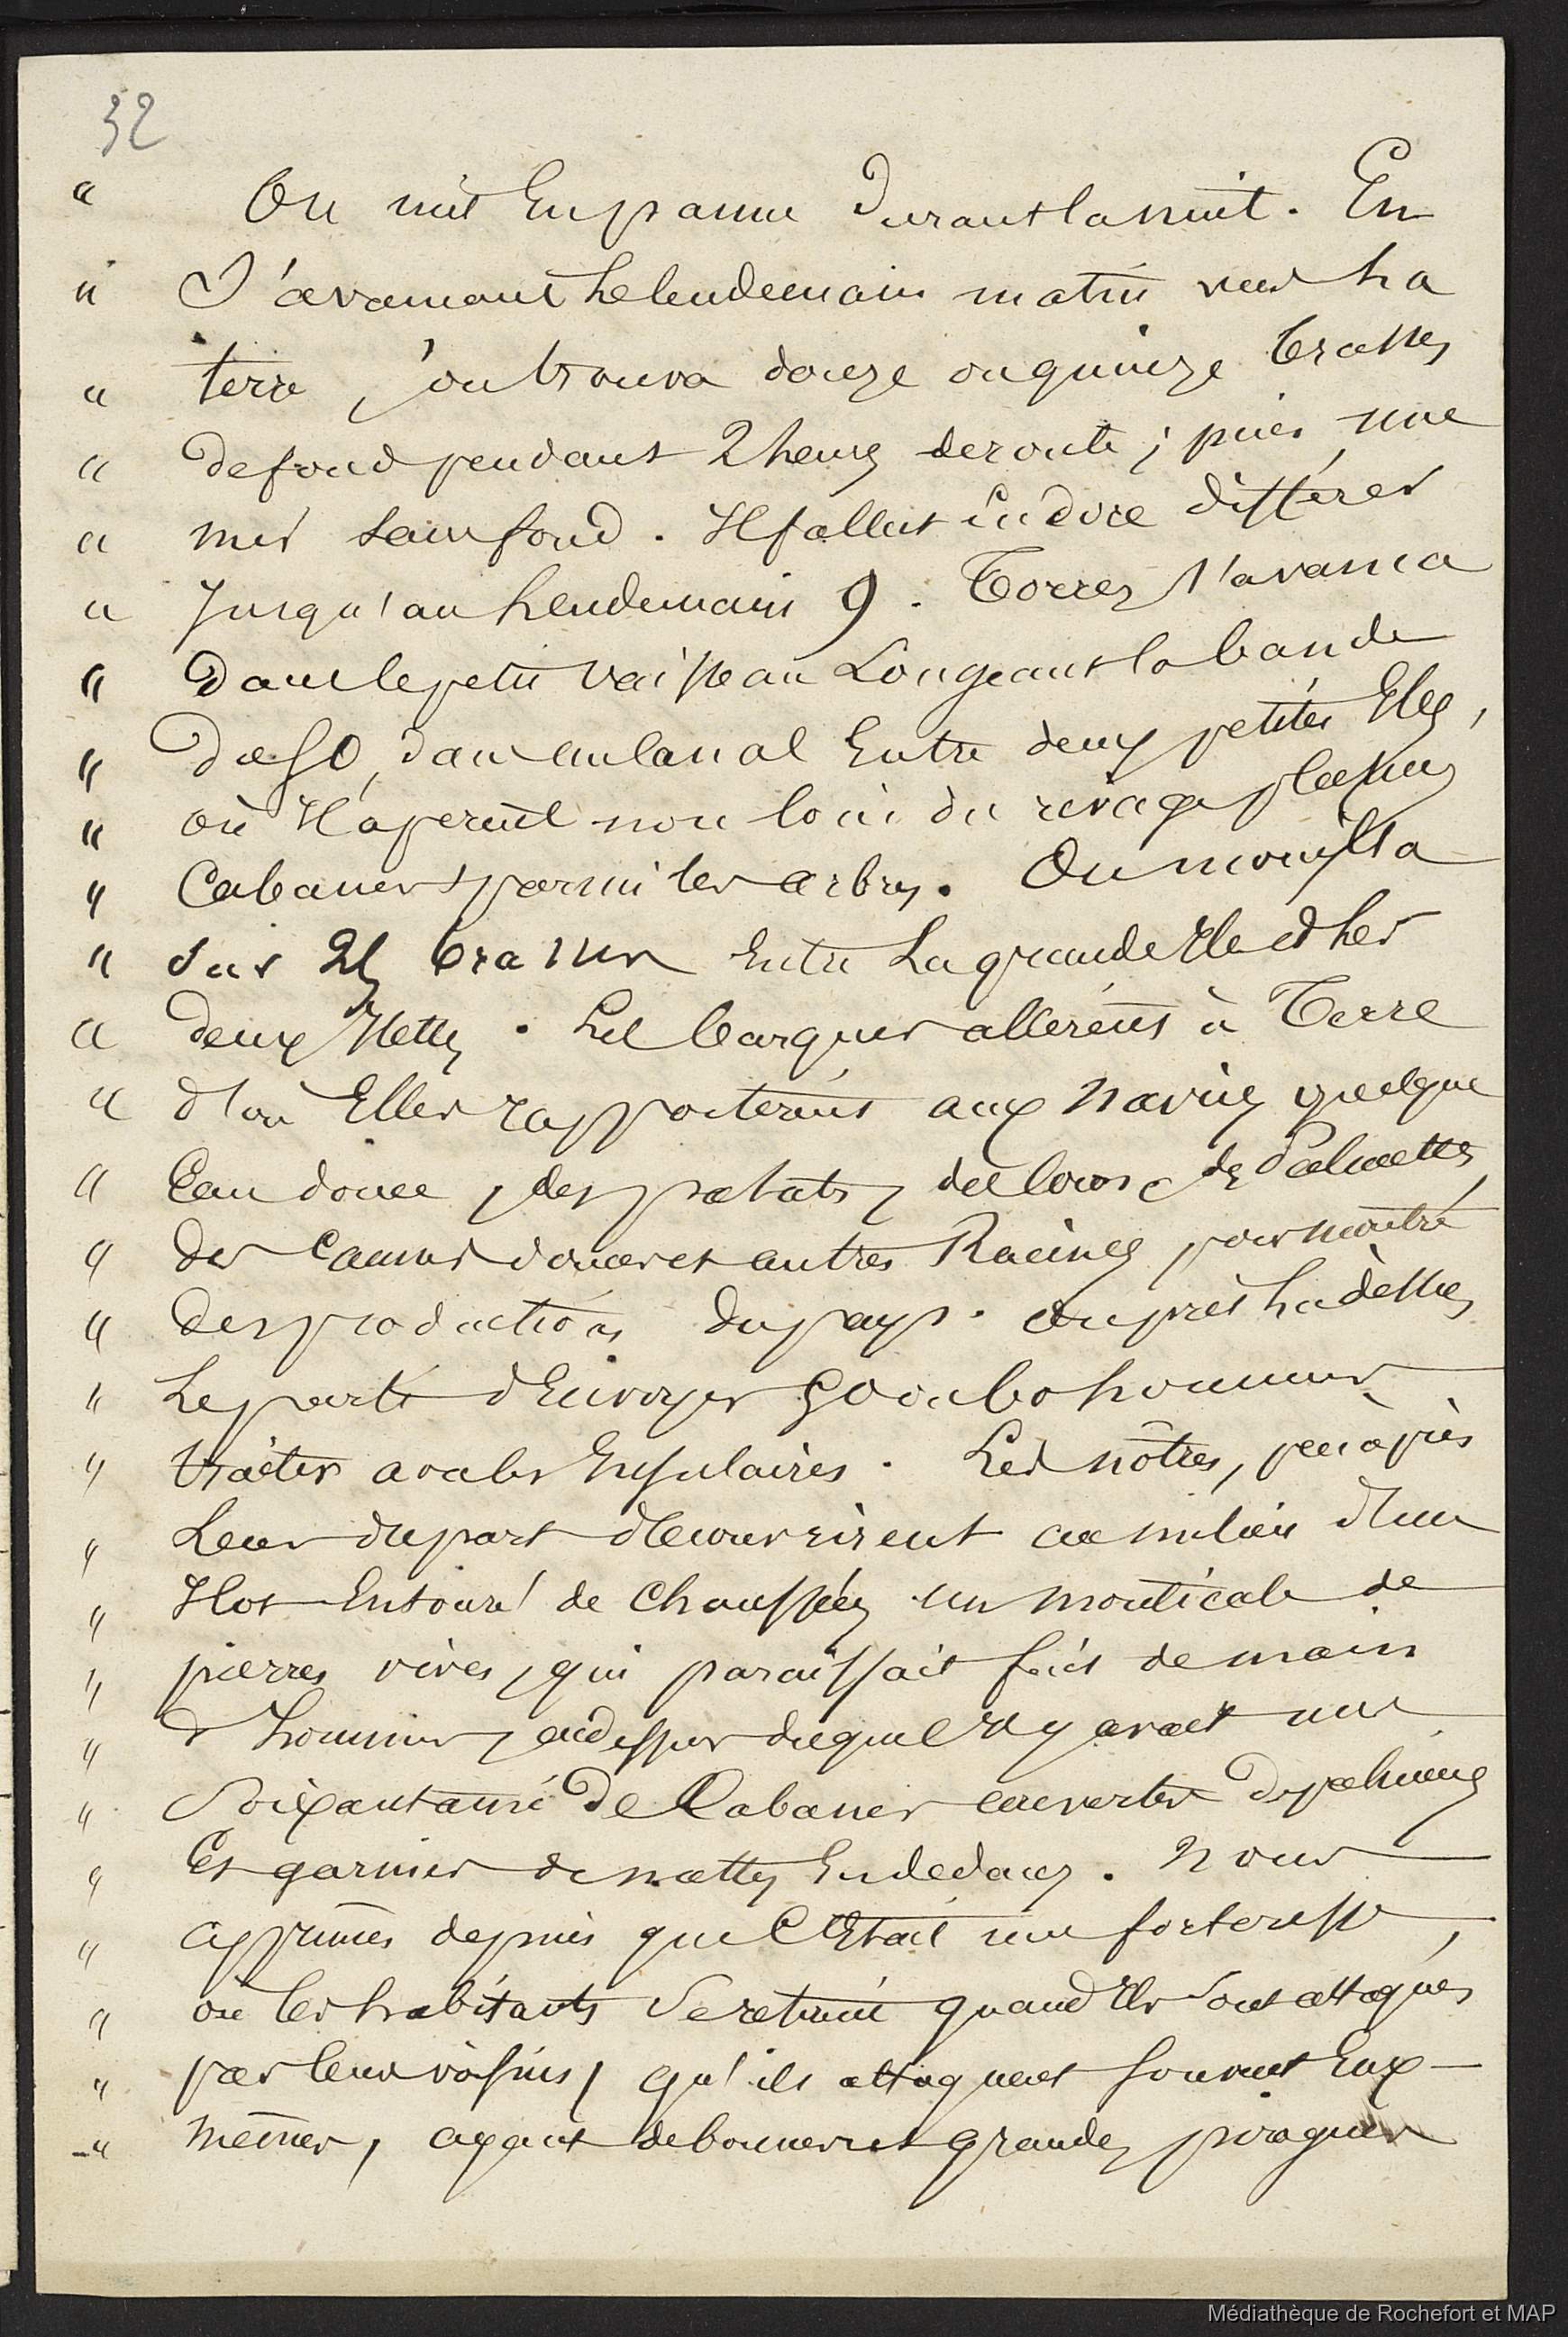 32
" On mit en panne durant la nuit. En
" s'avançant le lendemain matin vers la
" terre, on trouva douze ou quinze brasses
" de fond pendant 2 heures de route ; puis une
" mer sans fond. Il fallut encore différer
" jusqu'au lendemain 9. Torrez s'avança
" dans le petit vaisseau longeant la bande
" du SO, dans un canal entre deux petites Iles,
" où il aperçut non loin du rivage plusieurs
" Cabanes parmi les arbres. On mouilla
" sur 25 brasses entre la grande Ile et les
" deux Ilettes. Les barques allèrent à Terre
" d'où Elles rapportèrent aux navires quelque
" Eau douce, des patates, des cocos, de Palmettes,
" des Cannes douces et autres Racines pour montre
" des productions du pays. On prit là dessus
" le parti d'Envoyer 50 hommes
" traiter avec les Insulaires. Les nôtres, peu après
" Leur départ découvrirent au milieu d'un
" Ilot Entouré de Chaussées un monticule de
" pierres vives, qui paraissait fait de main
" d'hommes, au dessus duquel il y avait une
" Soixantaine de Cabanes couvertes de palmiers
" Et garnies de nattes En dedans. Nous
" apprimes depuis que C'Etait une forteresse,
" où les habitants se retirent quand Ils sont attaqués
" par leurs voisins, qu'ils attaquent souvent Eux-
" mêmes, ayant de bonnes et grandes pirogues
Médiathèque de Rochefort et MAP